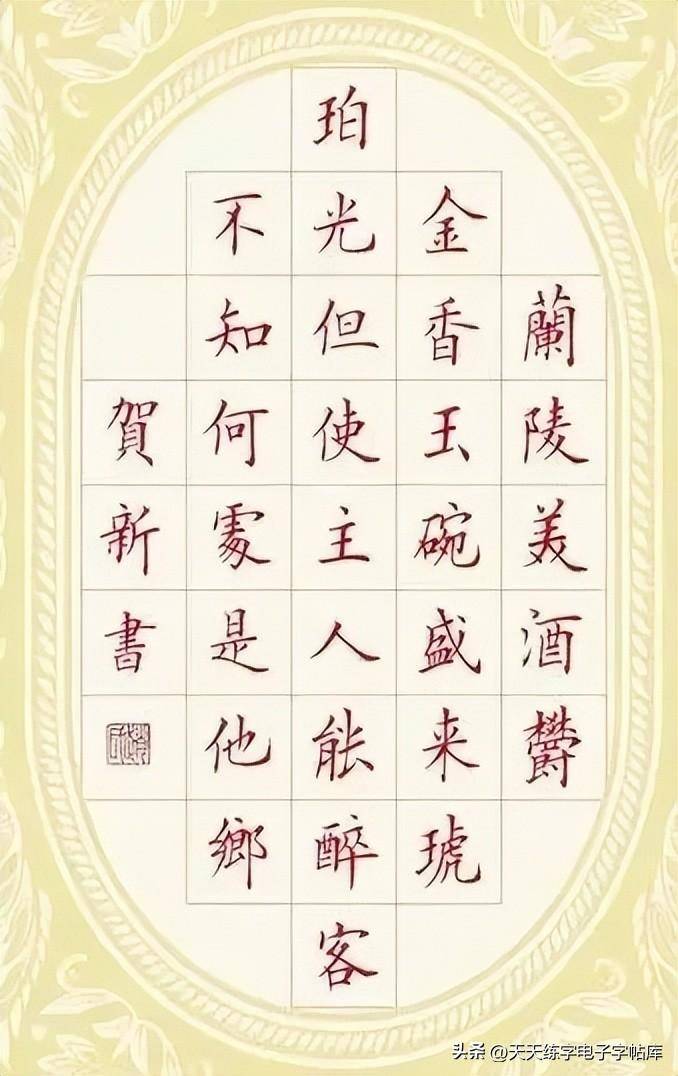 蘭陵美酒欎
金香玉碗盛来琥
珀光但使主人能醉客
不知何處是他鄉
賀新書
头条 @天天练字电子字帖库